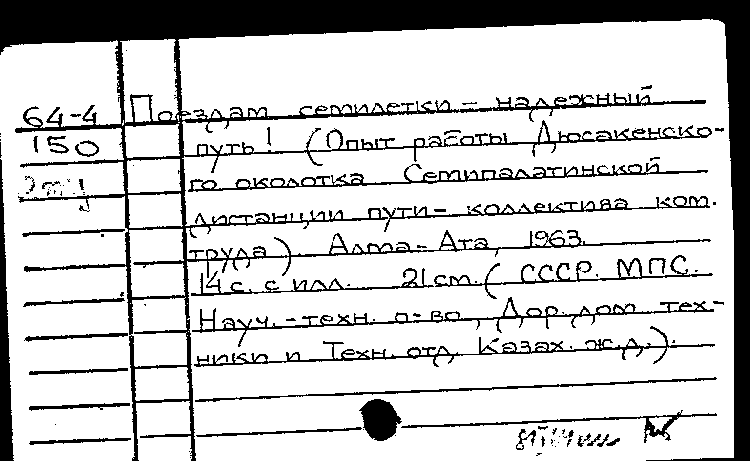 64-4 Поездам семилетки - надежный
150 путь! (Опыт работы Дюсакенско-
го околотка Семипалатинской
дистанции пути - коллектива ком.
труда). Алма-Ата, 1963.
14 с. с илл. 21 см. (СССР. МПС.
Науч.-техн. о-во, Дор. дом тех-
ники и Техн. отд. Казах. ж.д.).